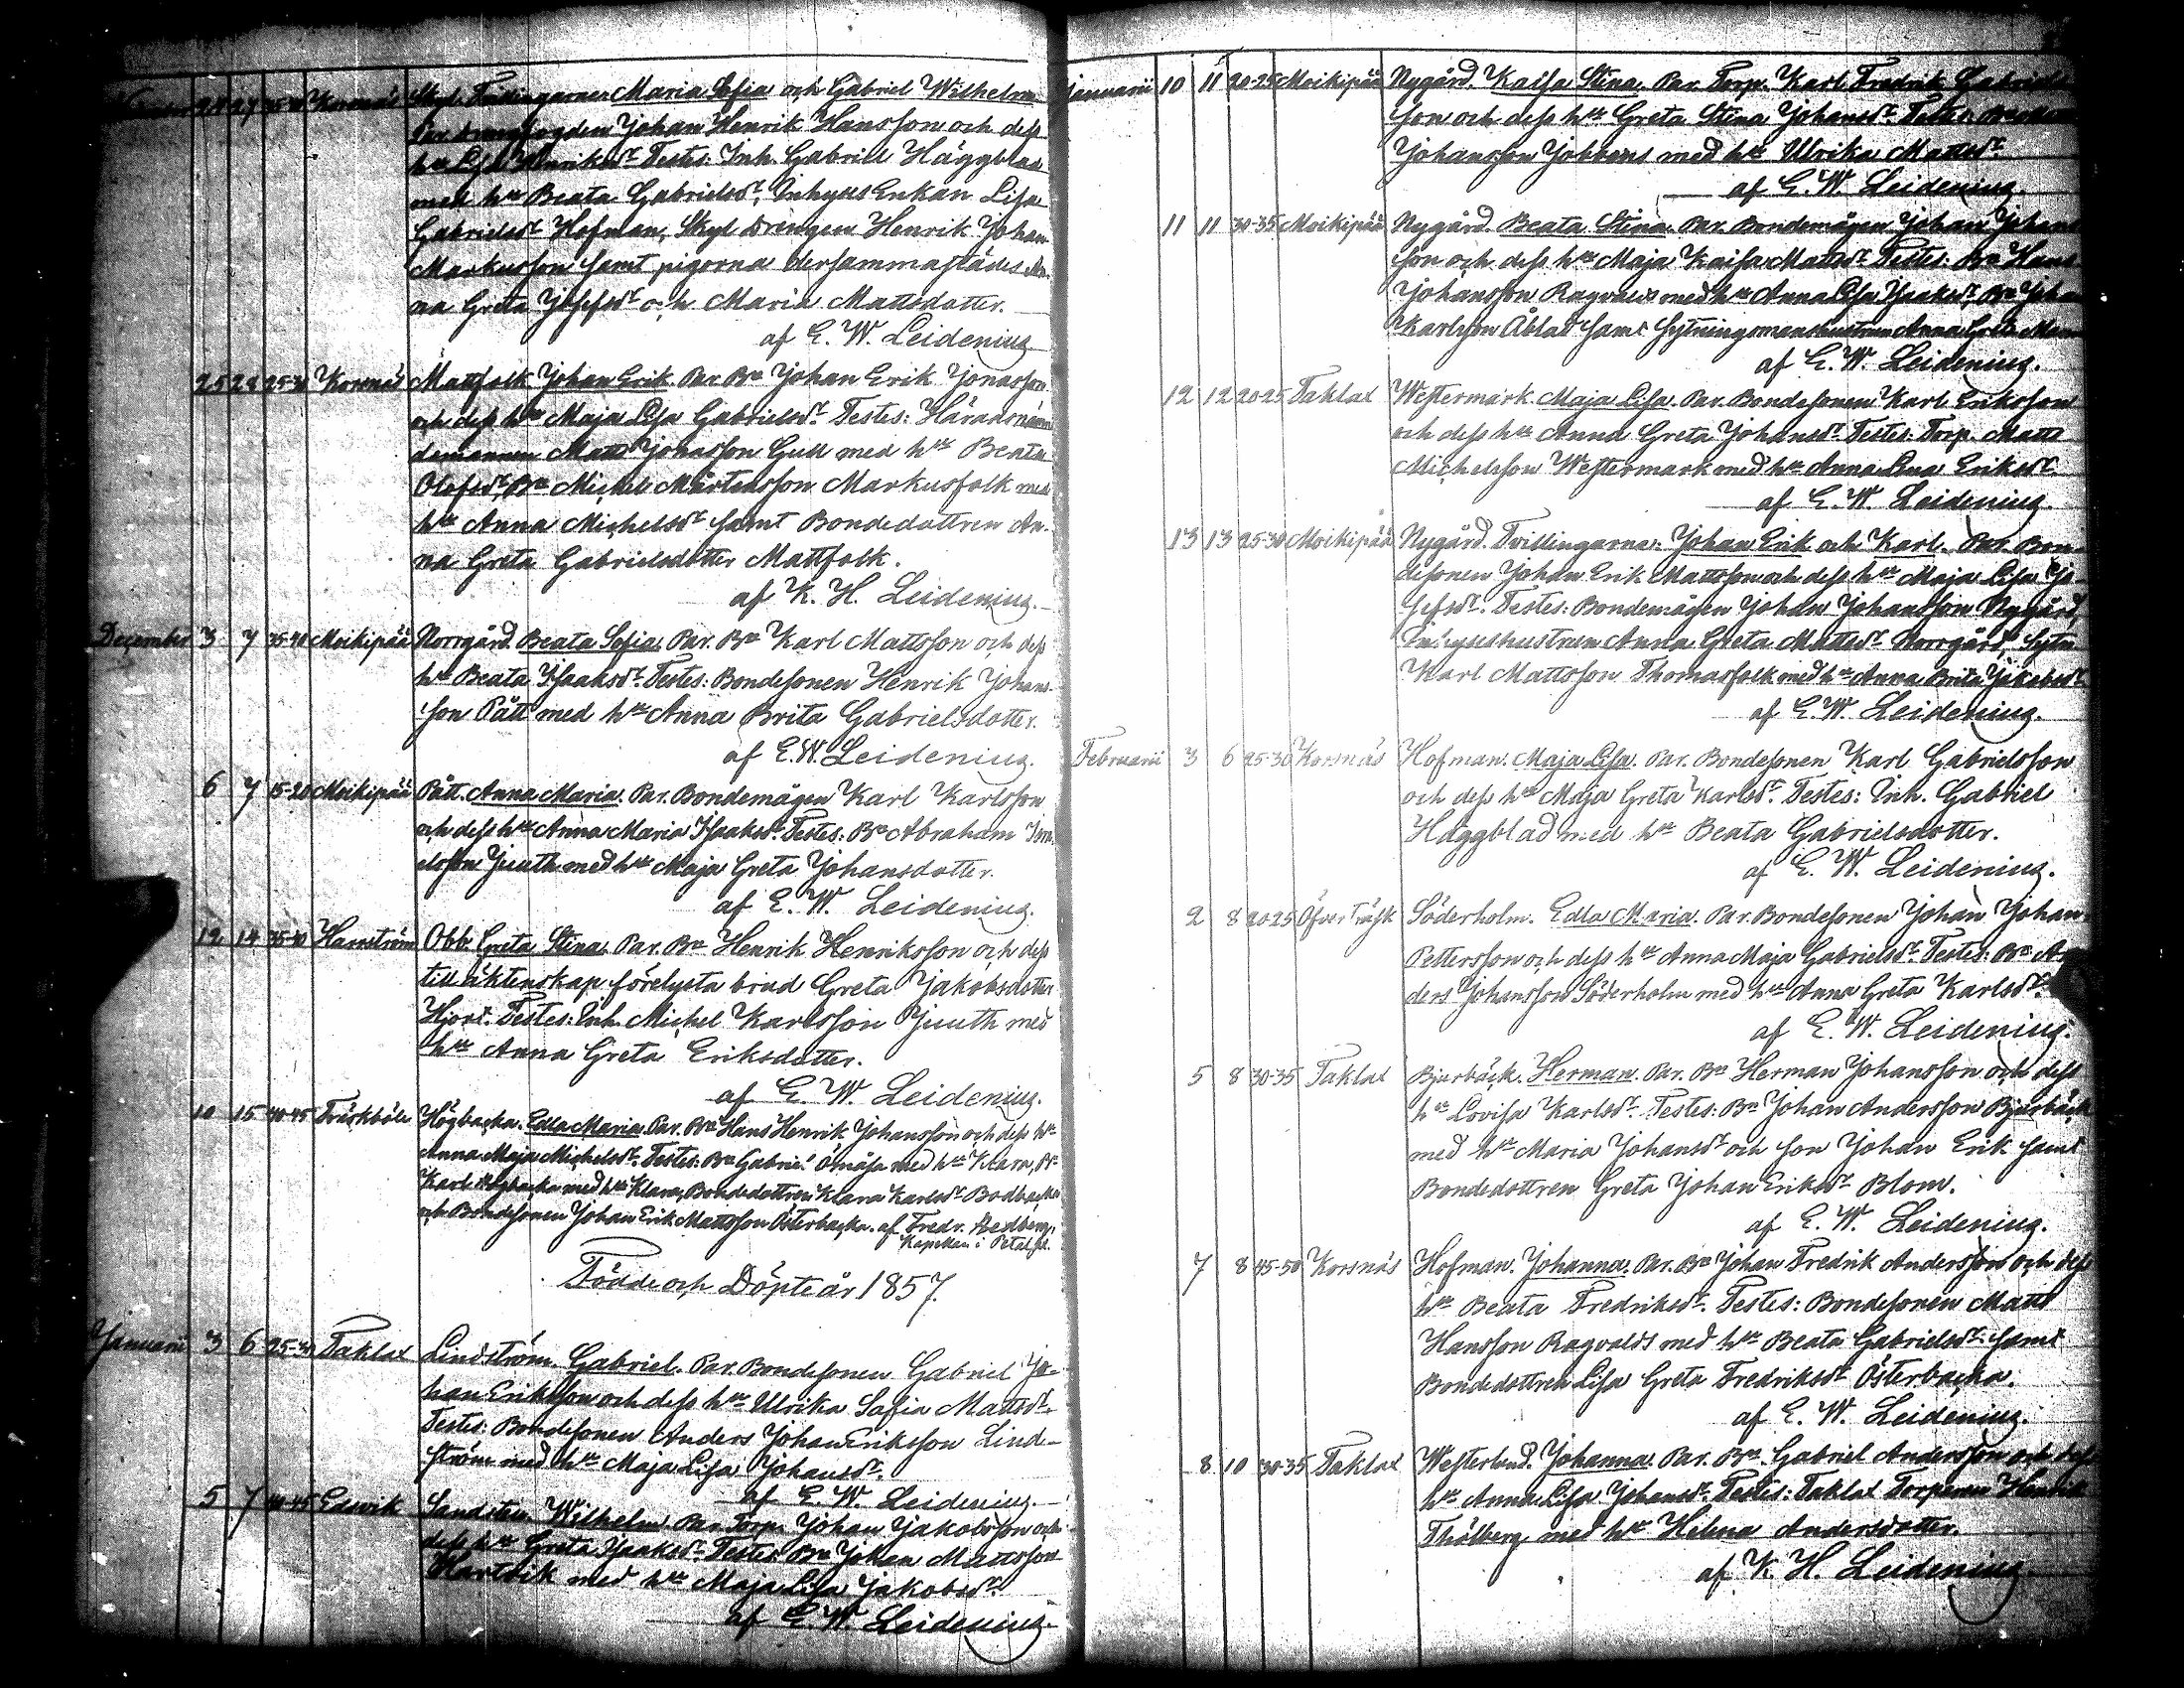 24 27 35-40 Korsnäs Skyt. Tvillingarner Maria Sofia och Gabriel Wilhelm.
Par. Johan Henrik Hansson och dess
hu Lisa Henriksdr. Testes: Inh. Gabriel Häggblad
med hu Beata Gabrielsdr, Inhyses Enkan Lisa
Gabrielsdr Hofman, Skyt drengen Henrik Johan
Markusson samt pigorna dersammastädes An-
na Greta Josefsdr och Maria Mattsdotter.
af E. W. Leidenius
25 28 25-30 Korsnäs Mattfolk Johan Erik. Par. Bn Johan Erik Jonasson
och dess hu Maja Lisa Gabrielsdr. Testes: Häradsnämn
demannen Matts Jonasson Gull med hu Beata
Olofsdr, Bn Michel Mårtensson Markusfolk med
hu Anna Michelsdr samt Bondedottren An-
na Greta Gabrielsdotter Mattfolk.
af K. H. Leidenius.
December 3 7 35-40 Moikipää Norrgård. Beata Sofia. Par. Bn Karl Mattsson och dess
hu Beata Isaaksdr. Testes: Bondesonen Henrik Johans-
son Pått med hu Anna Brita Gabrielsdotter.
af E. W. Leidenius.
6 7 15-20 Moikipää Pått. Anna Maria. Par. Bondemågen Karl Karlsson
och dess hu Anna Maria Isaaksdr. Testes: Bn Abraham Isra-
elsson Juuth med hu Maja Greta Johansdotter.
af E. W. Leidenius.
12 14 35-40 Harrström Obb. Greta Stina. Par. Bn Henrik Henriksson och dess
till äktenskap förelysta brud Greta Jakobsdotter
Hjort. Testes: Inh. Michel Karlsson Juuth med
hu Anna Greta Eriksdotter.
af E. W. Leidenius.
10 15 40-45 Träskböle Högbacka. Edla Maria. Par. Bn Hans Henrik Johansson och dess hu
Anna Maja Michelsdr. Testes: Bn Gabriel Ömåsa med hu Klara, Bn
Karl Högbacka med hu Klara, Bondedottren Klara Karlsdr Bodbacka
och Bondesonen Johan Erik Mattsson Österbacka. af Fredr. Hedberg,
Kapellan i Petalax.
Födde och Döpte år 1857.
Januarii 3 6 25-30 Taklax Lindström. Gabriel. Par. Bondesonen Gabriel Jo-
han Eriksson och dess hu Ulrika Sofia Mattsdr.
Testes: Bondesonen Anders Johan Eriksson Lind-
ström med hu Maja Lisa Johansdr.
af E. W. Leidenius.
5 7 40-45 Edsvik Sandsten Wilhelm. Par. Torp. Johan Jakobsson och
dess hu Greta Isaaksdr. Testes: Bn Johan Mattsson
Hartvik med hu Maja Lisa Jakobsdr.
af E. W. Leidenius.
Januarii 10 11 20-25 Moikipää Nygård. Kaisa Stina. Par. Torp. Karl Fredrik Gabriels
son och dess hu Greta Stina Johansdr. Testes:
Johansson Jobbens med hu Ulrika Mattsdr.
af E. W. Leidenius.
11 11 30-35 Moikipää Nygård. Beata Stina. Par. Bondemågen Johan Johans
son och dess hu Maja Kaisa Mattsdr. Testes: Bn Hans
Johansson Ragvalds med hu Anna Lisa Isaaksdr, Bn Johan
Karlsson Åblad samt Sytningsmanshustrun Anna Greta
af E. W. Leidenius.
12 12 20-25 Taklax Westermark. Maja Lisa. Par. Bondesonen Karl Eriksson
och dess hu Anna Greta Johansdr. Testes: Torp. Matts
Michelsson Westermark med hu Anna Lena Eriksdr.
af E. W. Leidenius.
13 13 25-30 Moikipää Nygård. Tvillingarna: Johan Erik och Karl. Par. Bon-
desonen Johan Erik Mattsson och dess hu Maja Lisa Jo-
sefsdr. Testes: Bondemågen Johan Johansson Nygård,
Inhyseshustrun Anna Greta Mattsdr Norrgård, Sytn
Karl Mattsson Thomasfolk med hu Anna Brita Jakobsdr.
af E. W. Leidenius.
Februarii 3 6 25-30 Korsnäs Hofman. Maja Lisa. Par. Bondesonen Karl Gabrielsson
och dess hu Maja Greta Karlsdr. Testes: Inh. Gabriel
Häggblad med hu Beata Gabrielsdotter.
af E. W. Leidenius.
2 8 20-25 Öfver Träsk Söderholm. Edla Maria. Par. Bondesonen Johan Johan
Pettersson och dess hu Anna Maja Gabrielsdr. Testes: Bn An
ders Johansson Söderholm med hu Anna Greta Karlsdr.
af E. W. Leidenius.
5 8 30-35 Taklax Bjurbäck. Herman. Par. Bn Herman Johansson och dess
hu Lovisa Karlsdr. Testes: Bn Johan Andersson Bjurbäck
med hu Maria Johansdr och son Johan Erik samt
Bondedottren Greta Johan Eriksdr Blom.
af E. W. Leidenius.
7 8 45-50 Korsnäs Hofman. Johanna. Par. Bn Johan Fredrik Andersson och dess
hu Beata Fredriksdr. Testes: Bondesonen Matts
Hansson Ragvalds med hu Beata Gabrielsdr. samt
Bondedottren Lisa Greta Fredriksdr Österbacka.
af E. W. Leidenius.
8 10 30-35 Taklax Westerlund. Johanna. Par. Bn Gabriel Andersson och dess
hu Anna Lisa Johansdr. Testes: Taklax Torparen Henrik
Thölberg med hu Helena Andersdotter.
af K. H. Leidenius.